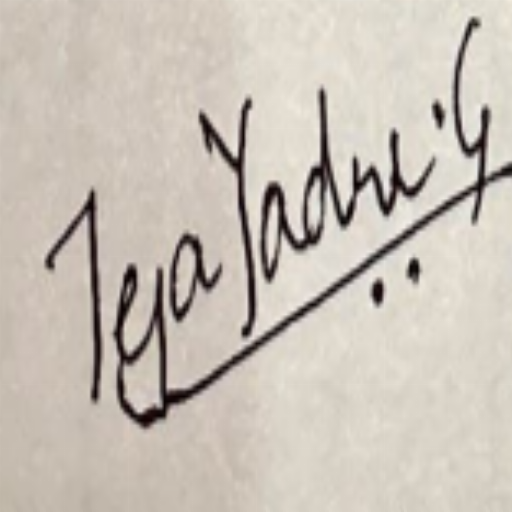 Teja Yadri.G